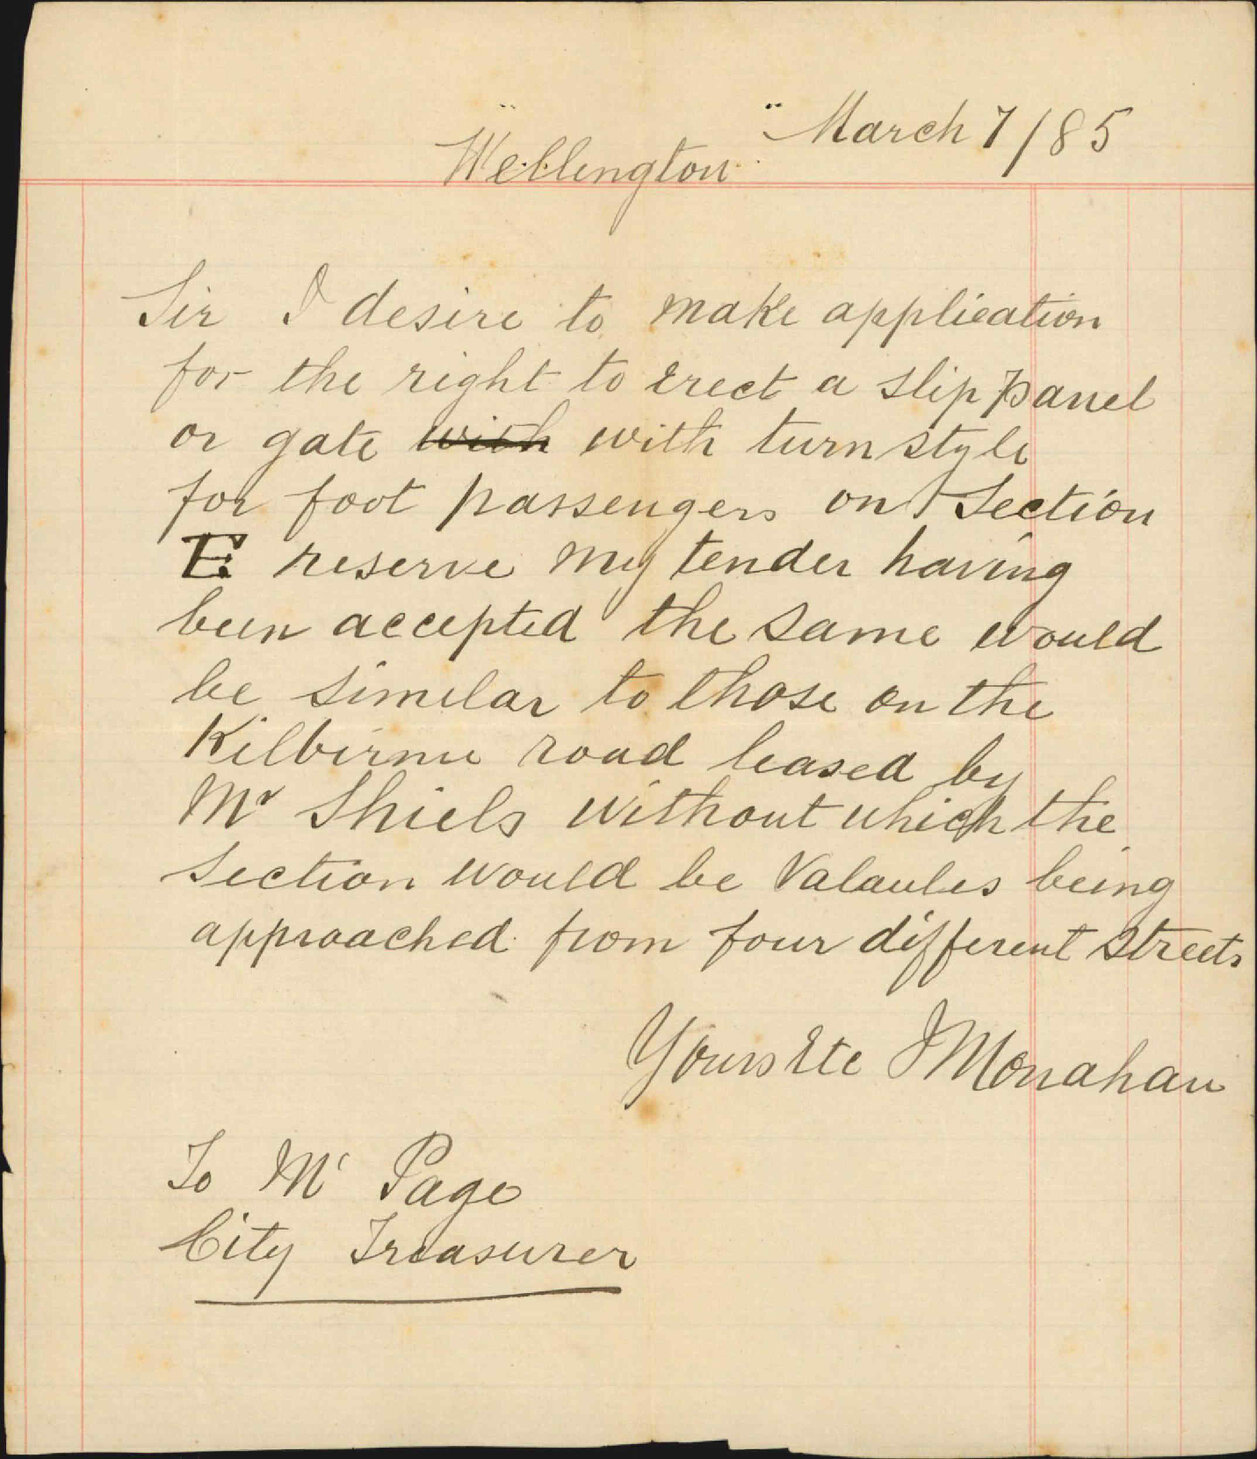 March 7/85
Wellington
Sir I desire to make application
for the right to erect a slip panel
or gate with with turn style
for foot passengers on Section
E reserve my tender having
been accepted the same would
be similar to those on the
Kilbirnie road leased by
Mr Shiels without which the
Section would be Valaules being
approached from four different Streets
Yours Etc J Monahan
To Mr Page
City Treasurer